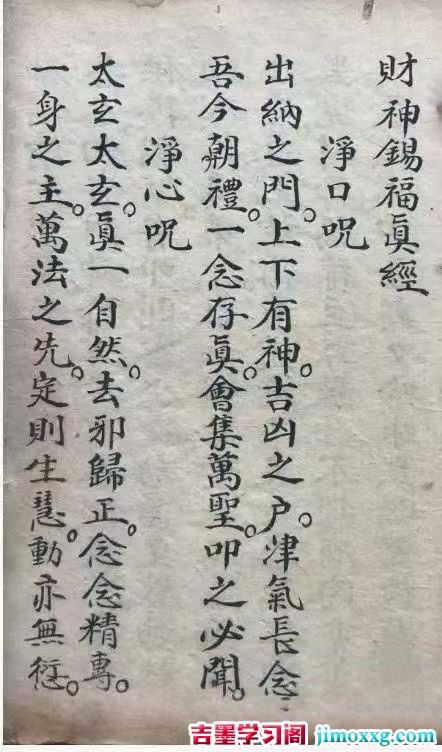 財神錫福眞經
淨口呪
出納之門。上下有神。吉凶之户。津氣長念
吾今朝禮。一念存眞。會集萬聖。叩之必聞。
淨心呪
太玄太玄。眞一自然。去邪歸正。念念精專。
一身之主。萬法之先。定則生慧。動亦無愆。
吉墨学习阁 jimoxxg.com